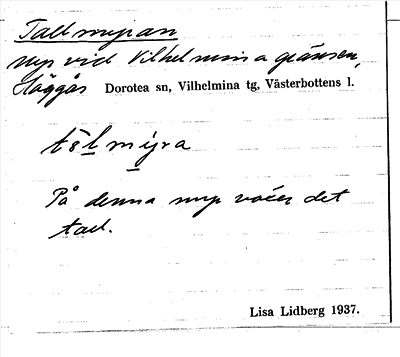 Tallmyran
myr vid Vilhelmina gränsen,
Häggås Dorotea sn, Vilhelmina tg, Västerbottens l.
På denna myr växer det
tall.
Lisa Lidberg 1937.